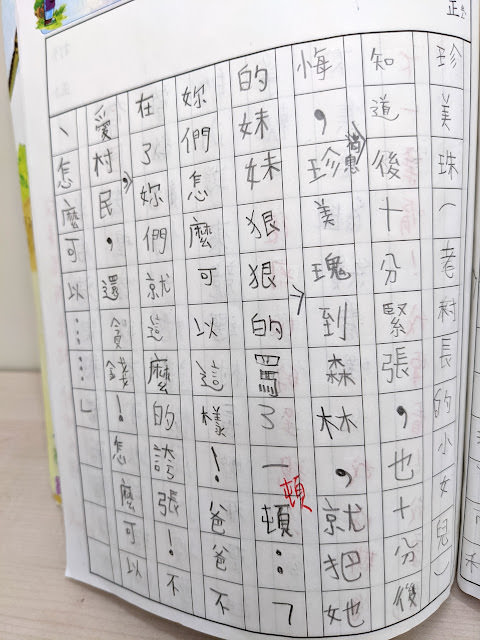 珍美珠（老村長的小女兒）
知道消息後十分緊張，也十分後
悔，珍美瑰到森林，就把她
的妹妹狠狠的罵了一頓：「
頓
妳們怎麼可以這樣！爸爸不
在了妳們就這麼的誇張！不
愛村民，還貪錢！怎麼可以
、怎麼可以……」